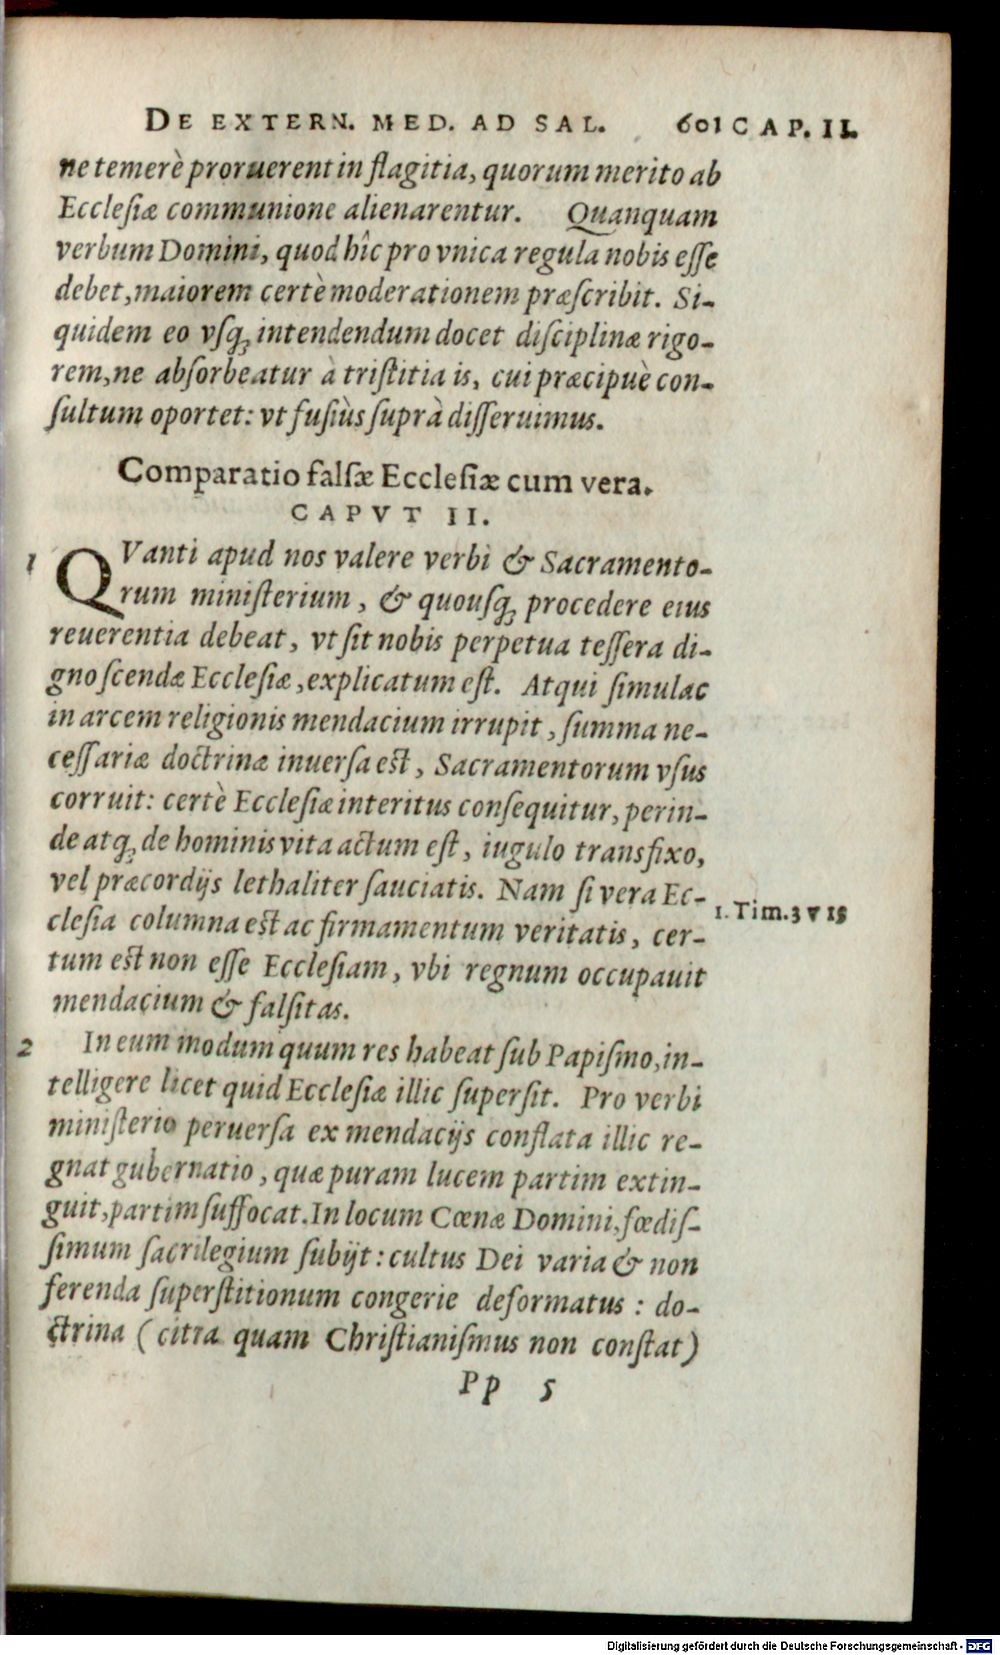 DE EXTERN. MED. AD SAL. 601 CAP. II.
ne temerè proruerent in flagitia, quorum merito ab
Ecclesiæ communione alienarentur. Quanquam
verbum Domini, quod hîc pro vnica regula nobis esse
debet, maiorem certè moderationem præscribit. Si-
quidem eo vsq; intendendum docet disciplinæ rigo-
rem, ne absorbeatur à tristitia is, cui præcipuè con-
sultum oportet: vt fusiùs suprà disseruimus.
Comparatio falsæ Ecclesiæ cum vera.
CAPVT II.
1 QVanti apud nos valere verbi & Sacramento-
rum ministerium, & quousq; procedere eius
reuerentia debeat, vt sit nobis perpetua tessera di-
gnoscendæ Ecclesiæ, explicatum est. Atqui simulac
in arcem religionis mendacium irrupit, summa ne-
cessariæ doctrinæ inuersa est, Sacramentorum vsus
corruit: certè Ecclesiæ interitus consequitur, perin-
de atq; de hominis vita actum est, iugulo transfixo,
vel præcordijs lethaliter sauciatis. Nam si vera Ec-
clesia columna est ac firmamentum veritatis, cer-
1. Tim. 3 v 15
tum est non esse Ecclesiam, vbi regnum occupauit
mendacium & falsitas.
2 In eum modum quum res habeat sub Papismo, in-
telligere licet quid Ecclesiæ illic supersit. Pro verbi
ministerio peruersa ex mendacijs conflata illic re-
gnat gubernatio, quæ puram lucem partim extin-
guit, partim suffocat. In locum Cœnæ Domini, fœdis-
simum sacrilegium subijt: cultus Dei varia & non
ferenda superstitionum congerie deformatus: do-
ctrina (citra quam Christianismus non constat)
Pp 5
Digitalisierung gefördert durch die Deutsche Forschungsgemeinschaft - DFG